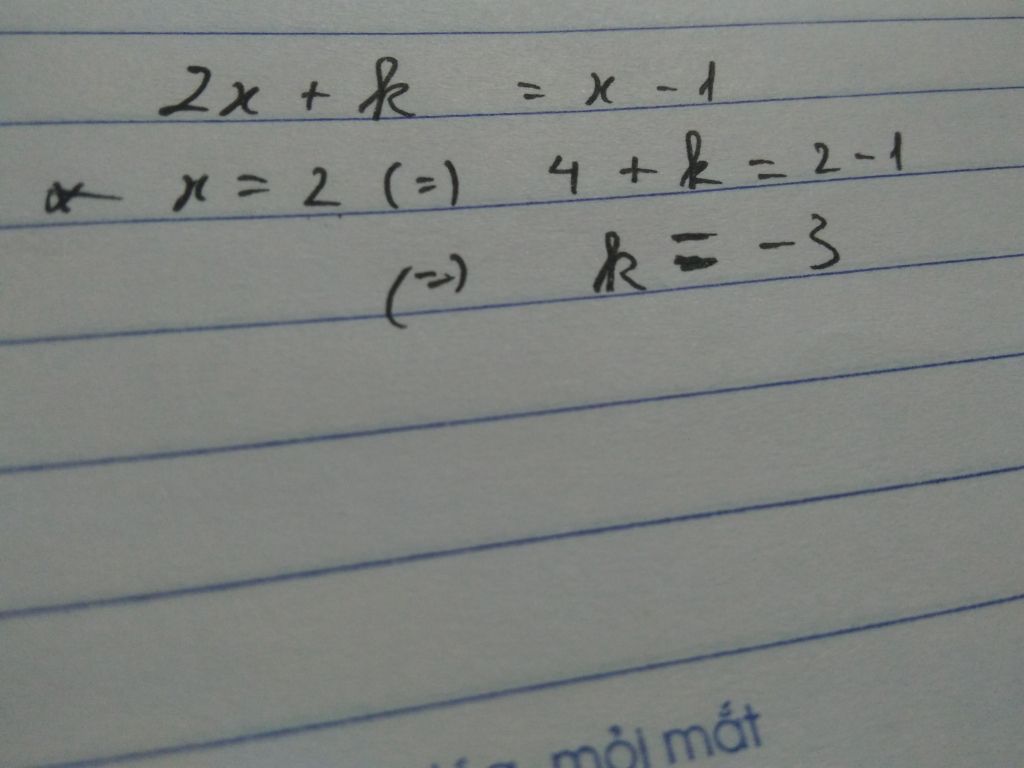 2x + k = x - 1
x = 2 (=) 4 + k = 2 - 1
(=) k = -3
mỏi mắt